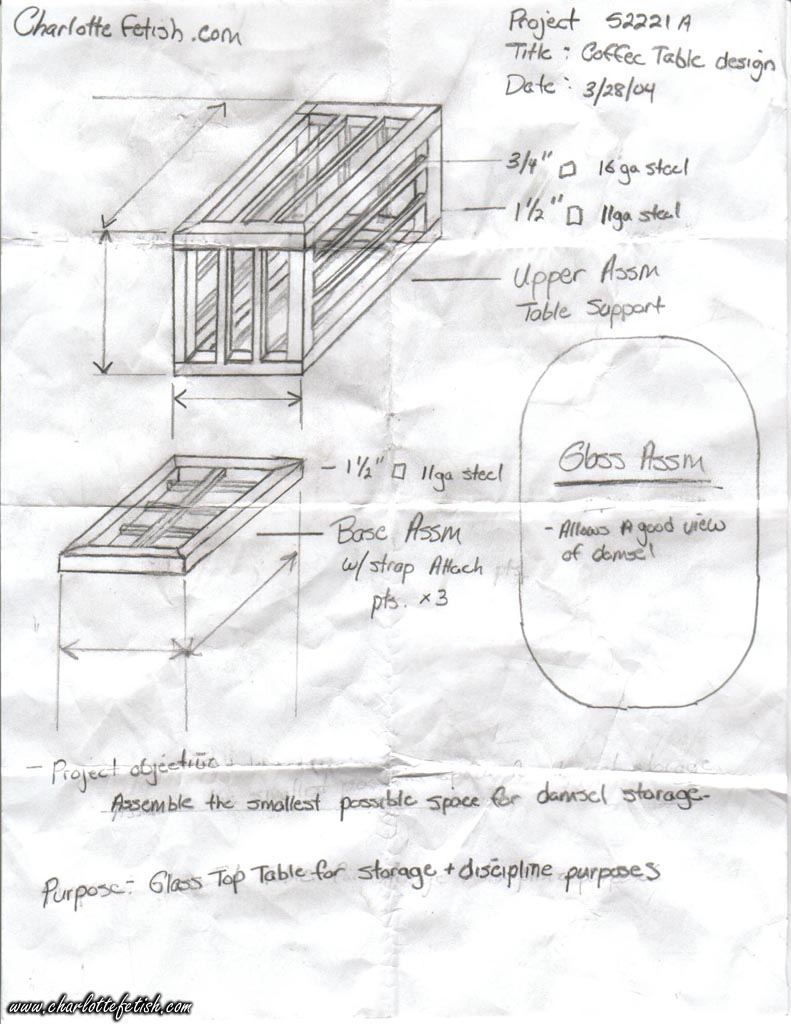 Charlotte Fetish.com
Project 52221A
Title: Coffee Table design
Date: 3/28/04
3/4" □ 16ga steel
1 1/2" □ 11ga steel
Upper Assm
Table Support
1 1/2" □ 11ga steel
Base Assm
w/ strap Attach
pts. x3
Glass Assm
- Allows A good view
of damsel
- Project objective
Assemble the smallest possible space for damsel storage.
Purpose: Glass Top Table for storage + discipline purposes
www.charlottefetish.com